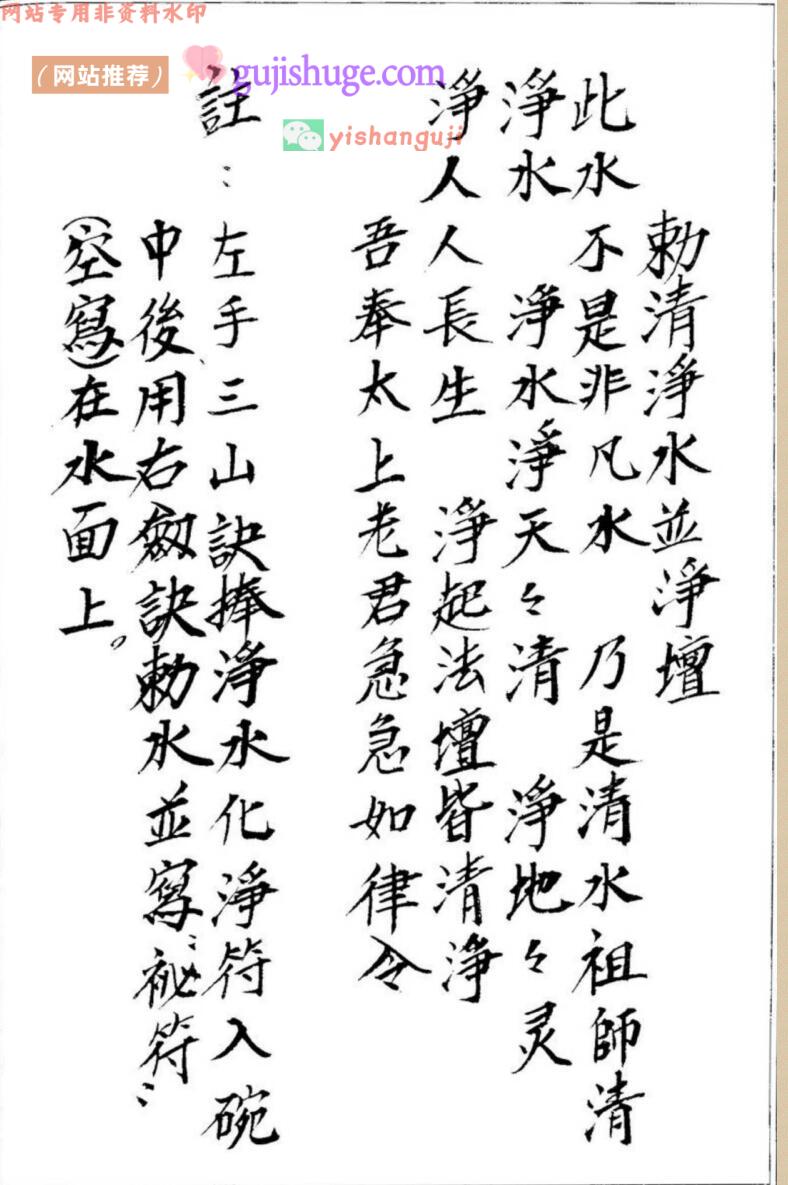 网站专用非资料水印
（网站推荐）
gujishuge.com
yishanguji
勅清淨水並淨壇
此水不是非凡水 乃是清水祖師清
淨水 淨水淨天々清 淨地々灵
淨人人長生 淨起法壇皆清淨
吾奉太上老君急急如律令
註：左手三山訣捧淨水化淨符入碗
中後、用右劔訣勅水並寫：祕符：
(空寫)在水面上。